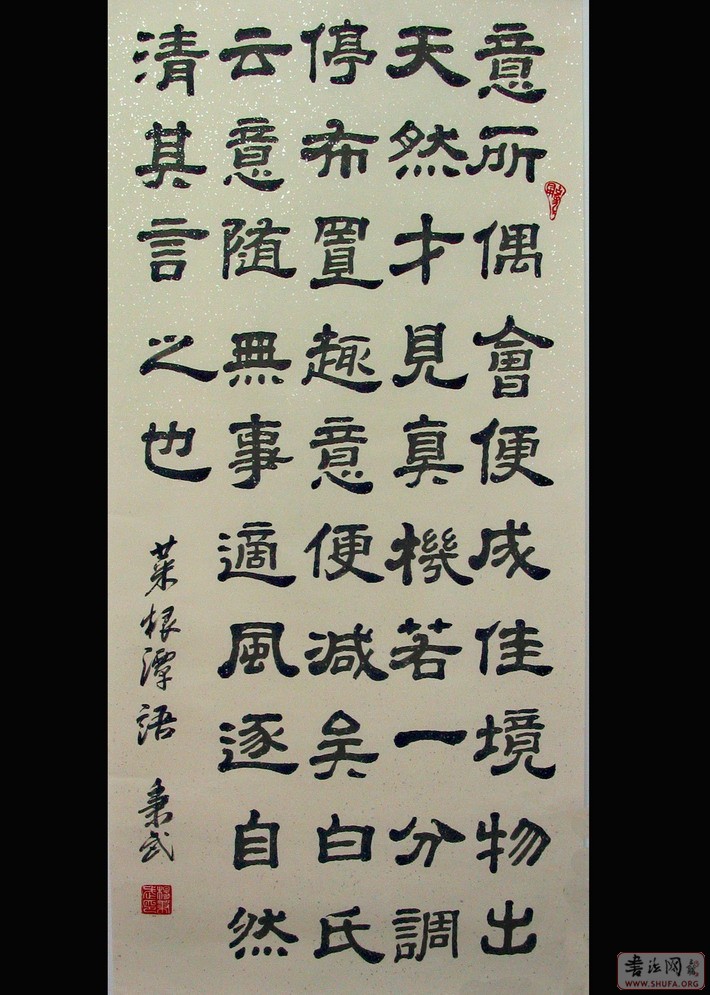 意所偶會便成佳境物出
天然才見真機若一分調
停布置趣意便減矣白氏
云意随無事適風逐自然
清其言之也
菜根潭語 秉武
书法网
WWW.SHUFA.ORG